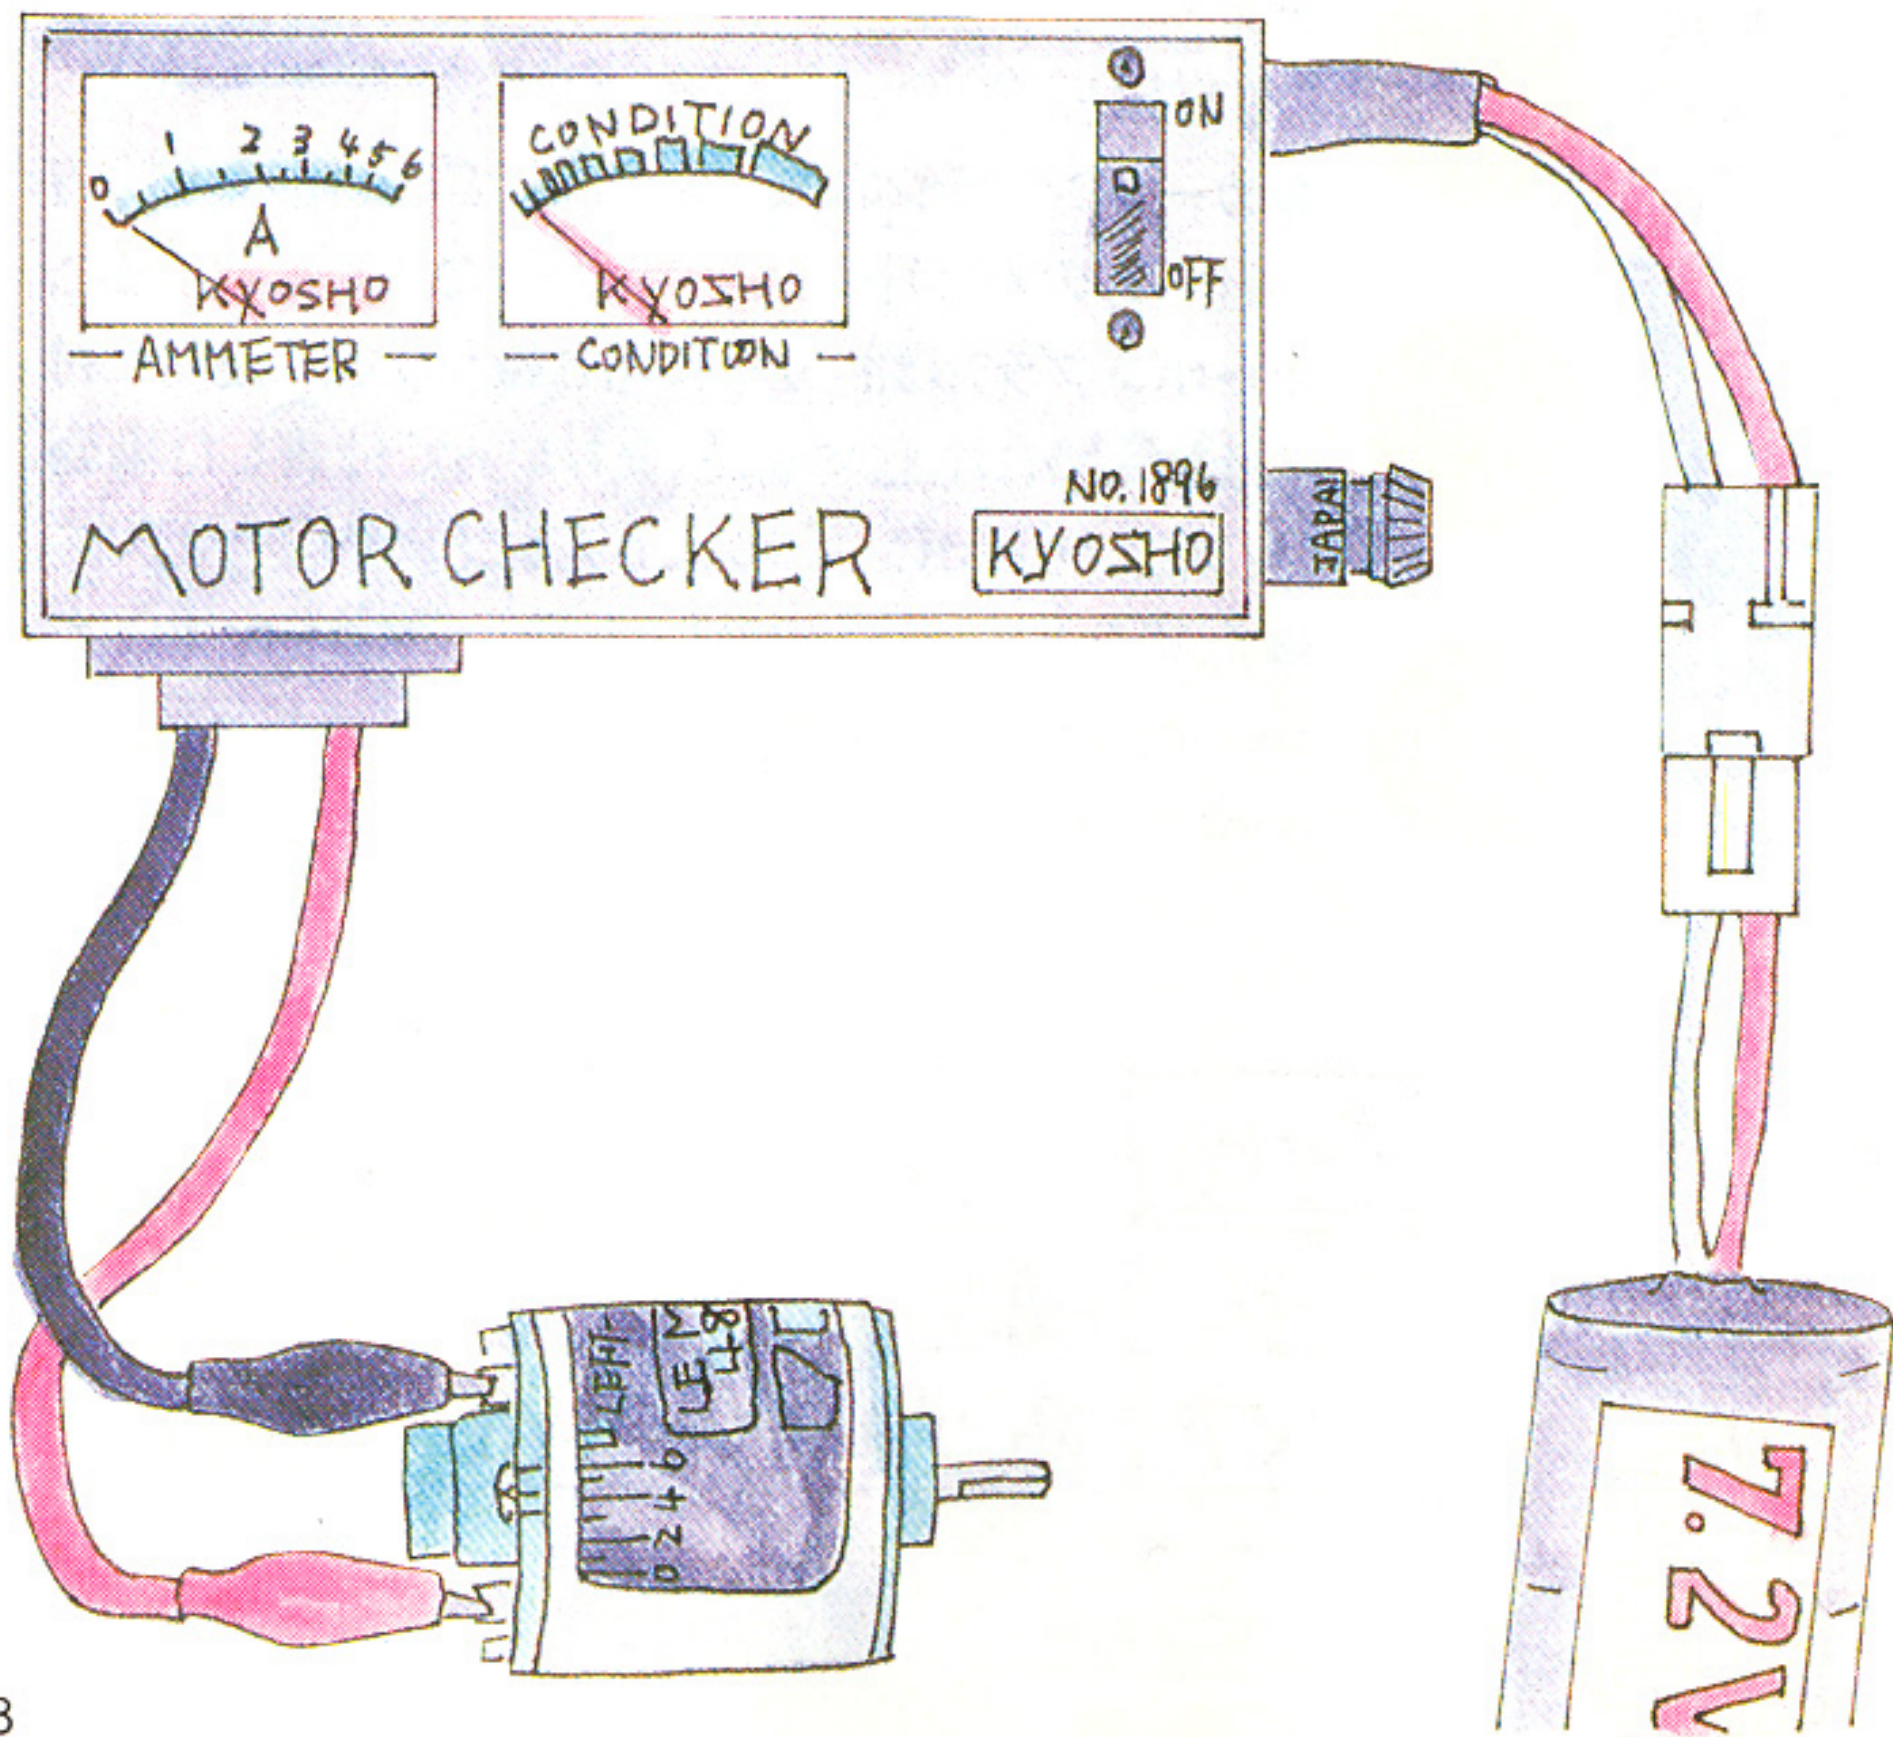 0 1 2 3 4 5 6
A
KYOSHO
— AMMETER —
CONDITION
KYOSHO
— CONDITION —
ON
OFF
NO. 1896
MOTOR CHECKER
KYOSHO
JAPAN
LE M
48
0 2 4 6
7.2V